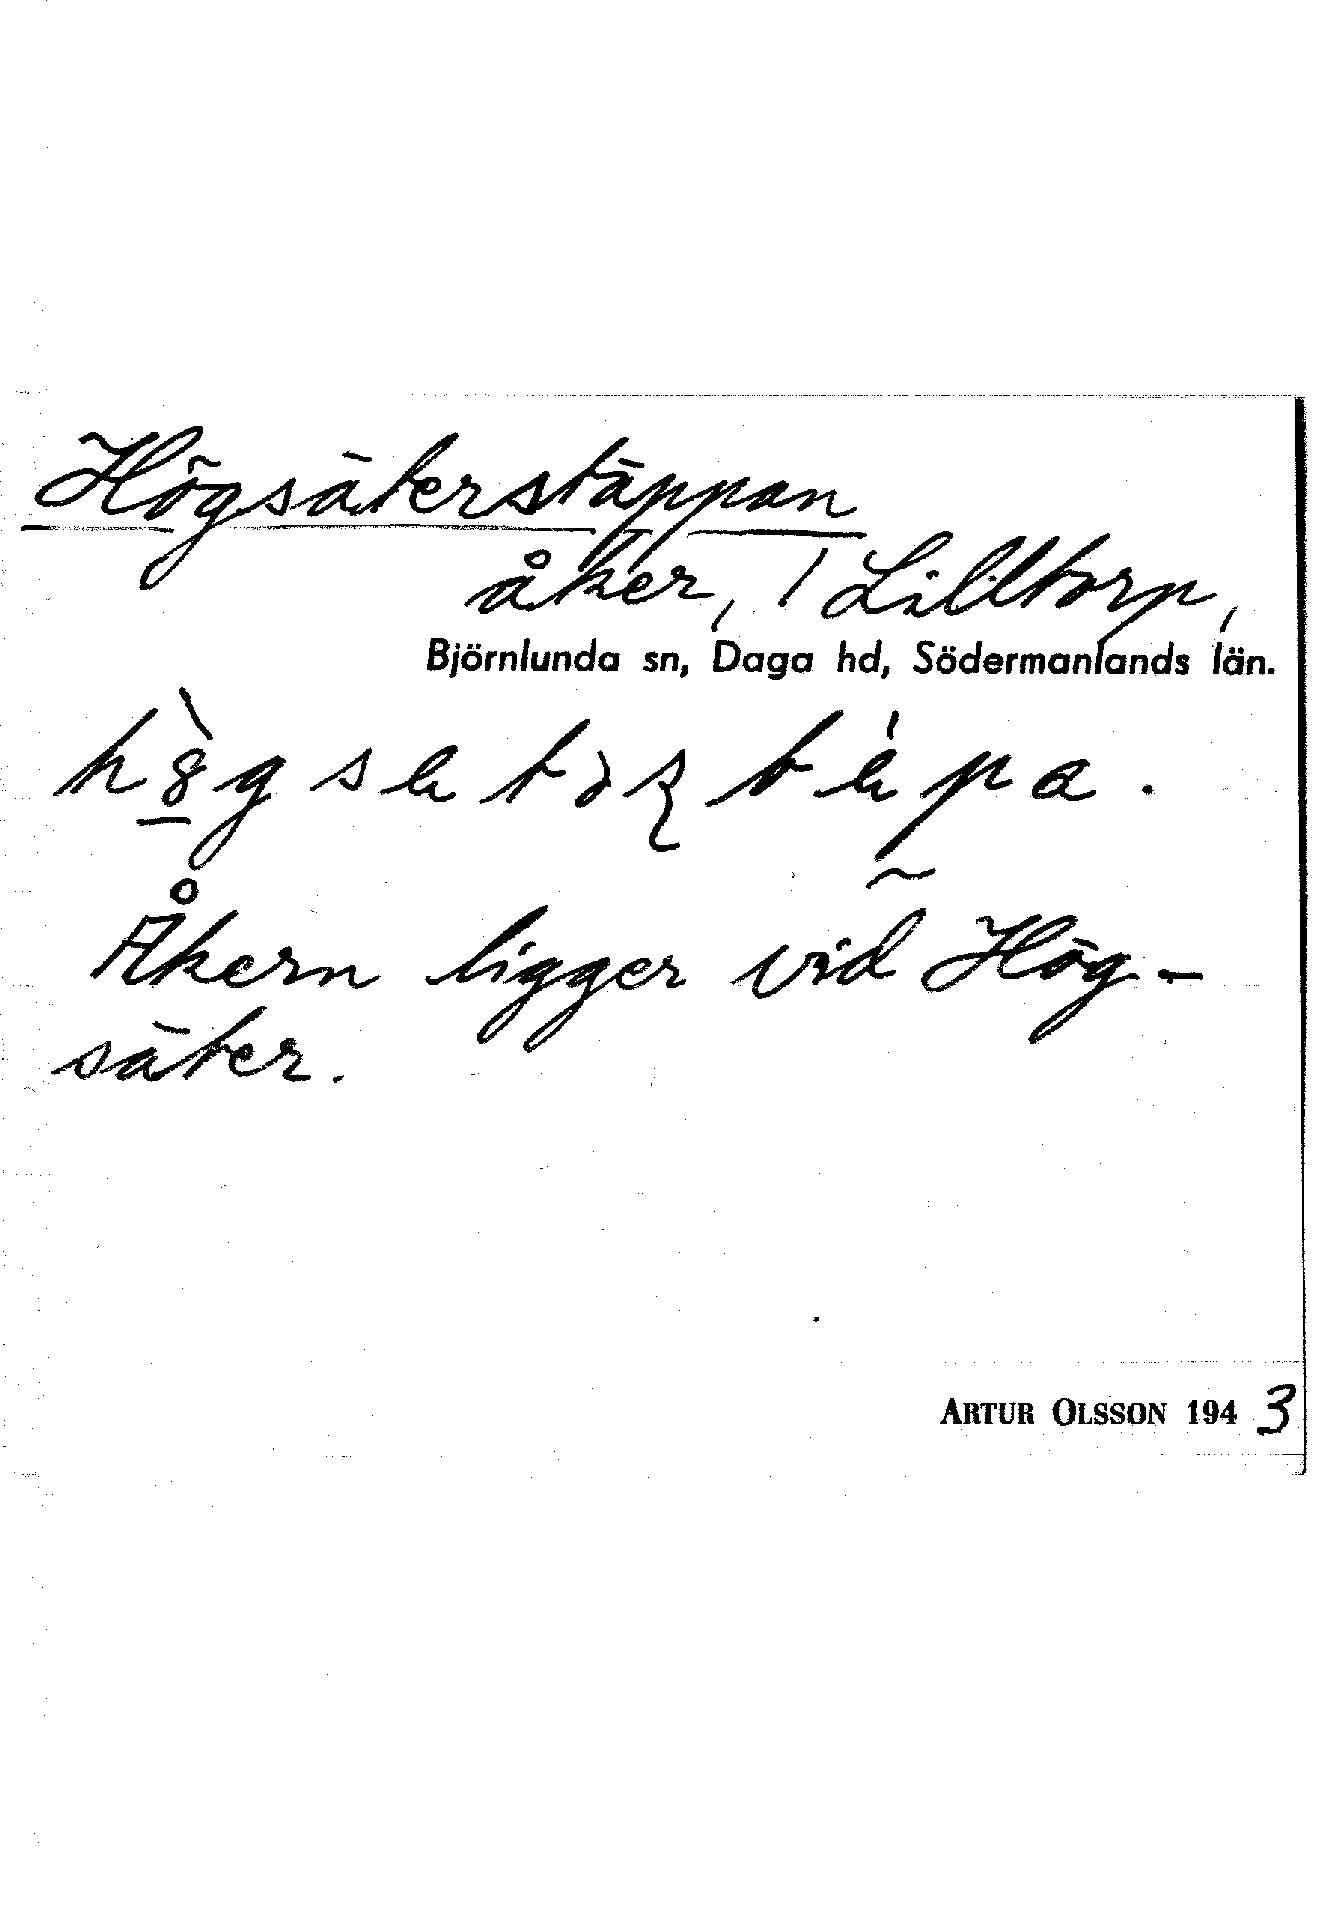 Högsäterstäppan
åker, / Lilltorp,
Björnlunda sn, Daga hd, Södermanlands län.
Åkern ligger vid Hög-
säter.
ARTUR OLSSON 194 3